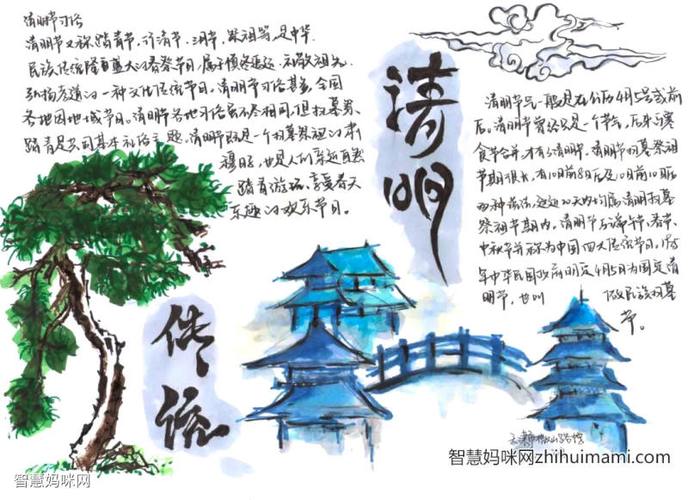 清明节习俗
清明节又称踏青节、行清节、三月节、祭祖节等，是中华
民族传统隆重盛大的春祭节日，属于慎终追远、礼敬祖先、
弘扬孝道的一种文化传统节日。清明节习俗甚多，全国
各地因地域节日。清明节各地习俗虽不尽相同，但扫墓祭
踏青是共同基本礼俗主题。清明节既是一个扫墓祭祖的肃
穆日，也是人们亲近自然
踏青游玩、享受春天
乐趣的欢乐节日。
清明
传统
清明节一般是在公历4月5号或前
后。清明节曾经只是一个节气，后来与寒
食节合并，才有了清明节。清明节扫墓祭祖
节期很长，有10日前8日后及10日前10日后
两种说法，这近20天内均属清明扫墓
祭祖节期内。清明节与端午节、春节、
中秋节并称为中国四大传统节日。
年中华民国政府明定4月5日为国定清
明节，也叫做民族扫墓
节。
智慧妈咪网zhihuimami.com
智慧妈咪网